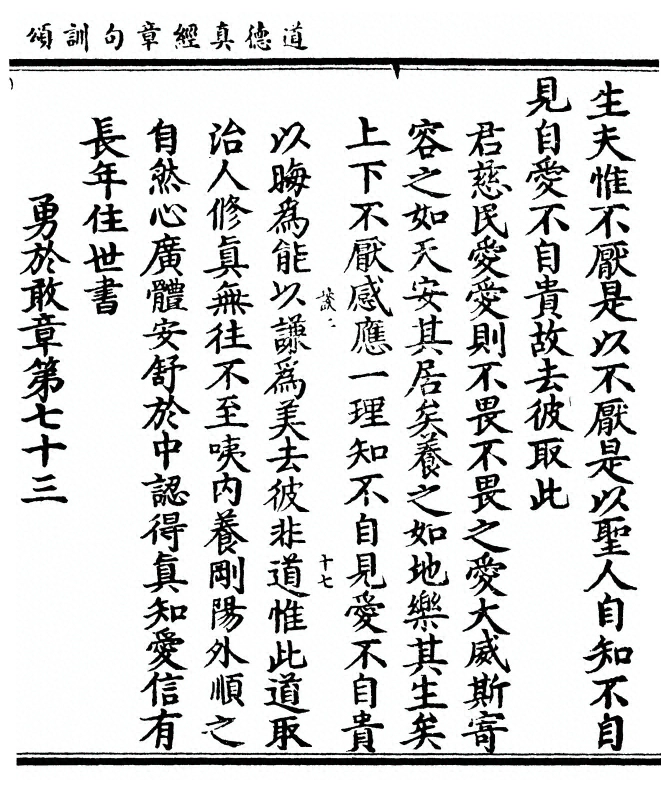 道德真經章句訓頌
生夫惟不厭是以不厭是以聖人自知不自
見自愛不自貴故去彼取此
君慈民愛愛則不畏不畏之愛大威斯寄
容之如天安其居矣養之如地樂其生矣
上下不厭感應一理知不自見愛不自貴
談二
十七
以晦爲能以謙爲美去彼非道惟此道取
治人修眞無往不至咦内養剛陽外順之
自然心廣體安舒於中認得眞知愛信有
長年住世書
勇於敢章第七十三